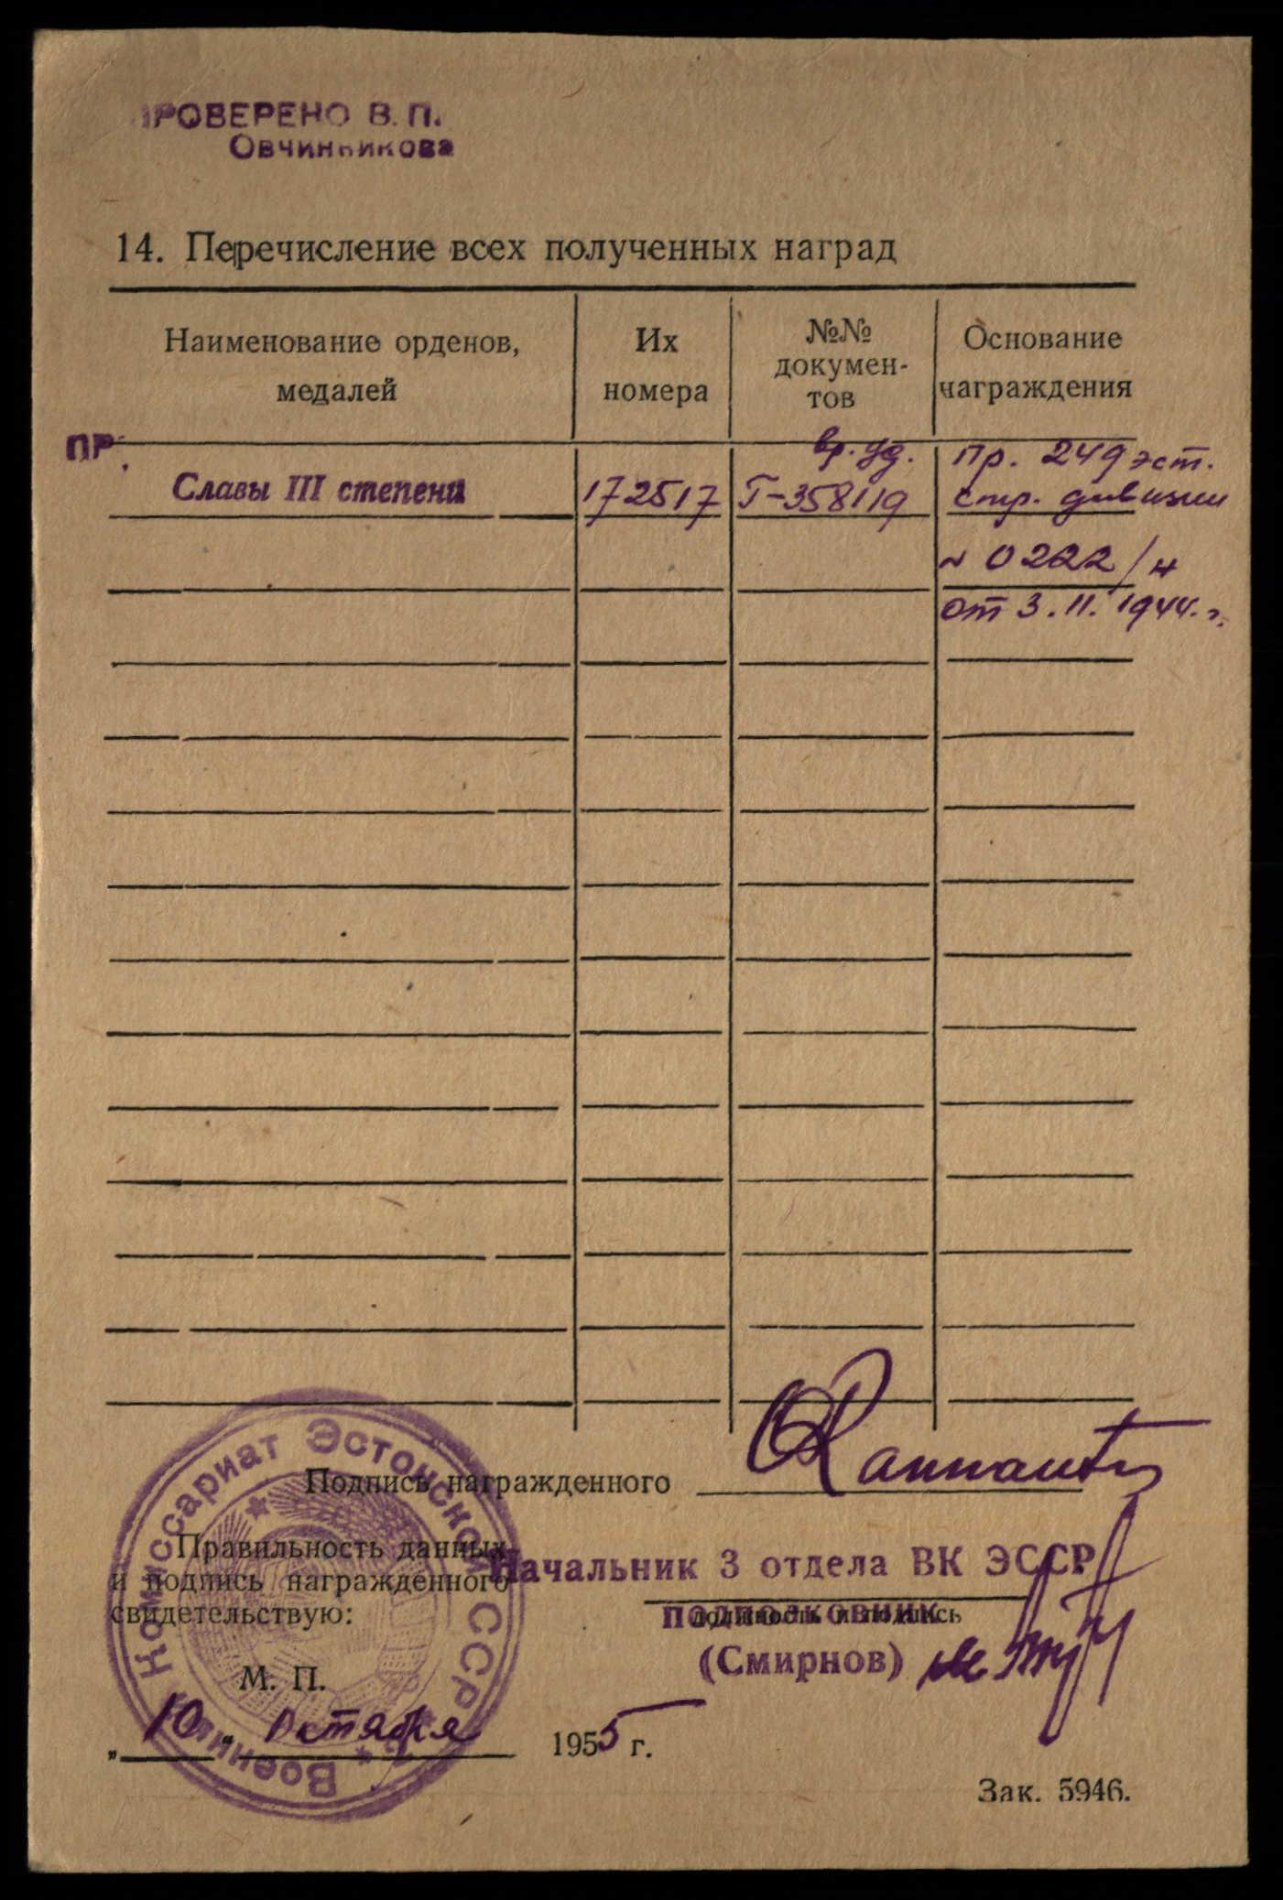 ПРОВЕРЕНО В. П.
Овчинникова
14. Перечисление всех полученных наград
Наименование орденов,
медалей
Их
номера
№№
докумен-
тов
Основание
награждения
ПР.
Славы III степени
172517
вр. уд.
Г-358119
Пр. 249 эст.
стр. дивизии
№ 0222/н
от 3.11.1944.г.
Подпись награжденного
Правильность данных
и подпись награжденного
свидетельствую:
Начальник 3 отдела ВК ЭССР
должность и подпись
подполковник
(Смирнов)
М. П.
„10“ октября 1955 г.
Военный Комиссариат Эстонской ССР
Зак. 5946.